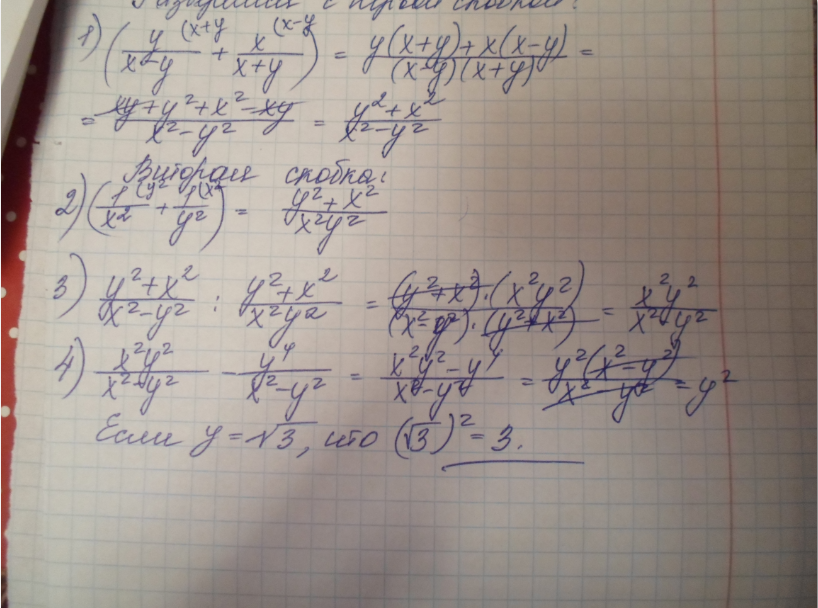 с первой скобкой:
1) (y/(x-y) (x+y + x/(x+y) (x-y) = (y(x+y)+x(x-y))/((x-y)(x+y)) =
= (xy+y²+x²-xy)/(x²-y²) = (y²+x²)/(x²-y²)
Вторая скобка:
2) (1/x² (y² + 1/y² (x²) = (y²+x²)/(x²y²)
3) (y²+x²)/(x²-y²) : (y²+x²)/(x²y²) = ((y²+x²)·(x²y²))/((x²-y²)·(y²+x²)) = x²y²/(x²-y²)
4) x²y²/(x²-y²) - y⁴/(x²-y²) = (x²y²-y⁴)/(x²-y²) = y²(x²-y²)/(x²-y²) = y²
Если y = √3, то (√3)² = 3.